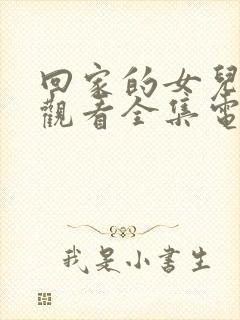 回家的女兒
觀看全集電
我是小書生